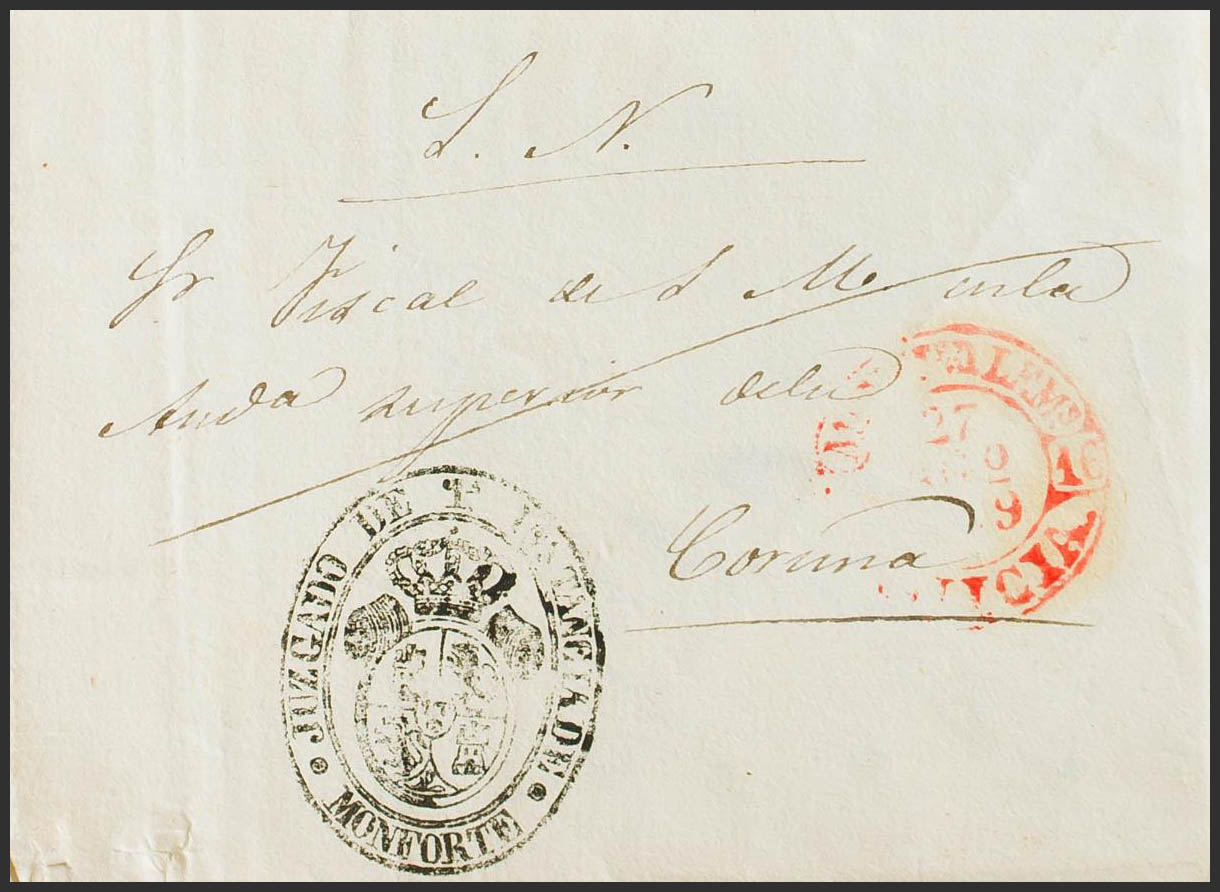 S. N.
Sr Fiscal de S M. en la
Auda superior de la
Coruña
JUZGADO DE 1ª INSTANCIA DE
MONFORTE
27
9